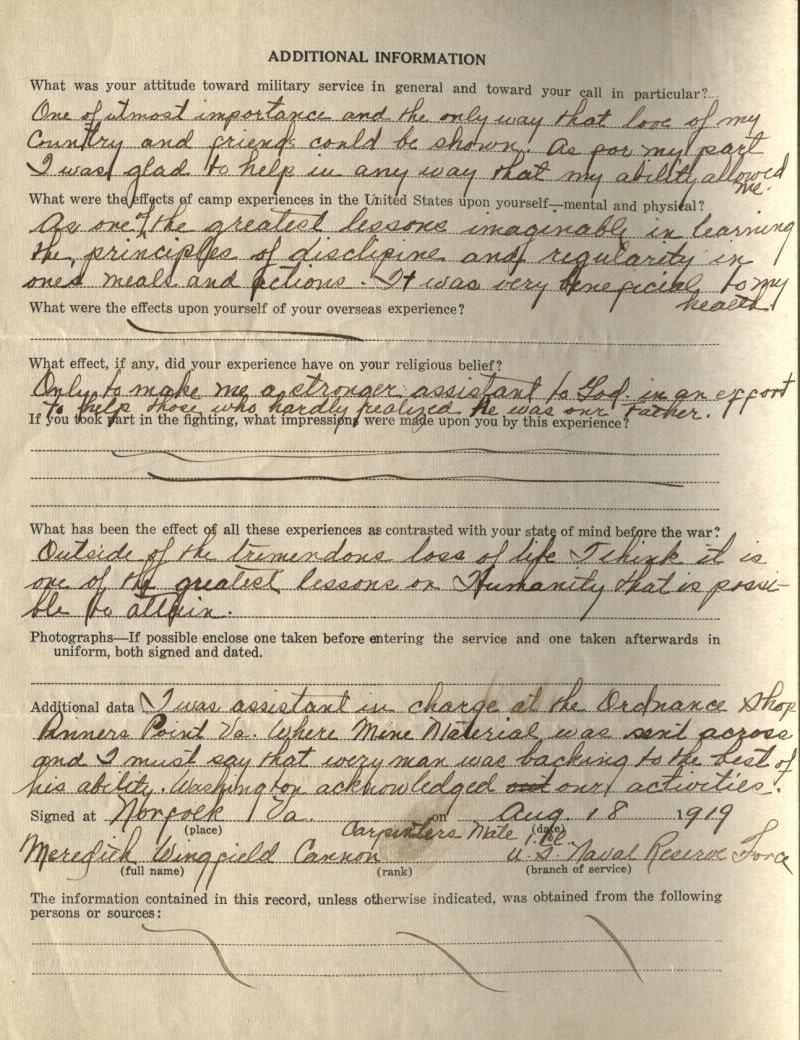 ADDITIONAL INFORMATION
What was your attitude toward military service in general and toward your call in particular?
One of utmost importance and the only way that love of my
Country and friends could be shown. As for my part
I was glad to help in any way that my ability allowed
me.
What were the effects of camp experiences in the United States upon yourself—mental and physical?
As one of the greatest lessons imaginable in learning
the principles of disclipine and regularity in
ones meals and actions. It was very beneficial to my
health.
What were the effects upon yourself of your overseas experience?
What effect, if any, did your experience have on your religious belief?
Only to make me a stronger assistant to God in an effort
to help those who hardly realized He was our Father.
If you took part in the fighting, what impressions were made upon you by this experience?
What has been the effect of all these experiences as contrasted with your state of mind before the war?
Outside of the tremendous loss of life I think it is
one of the greatest lessons on Humanity that is possi-
ble to attain.
Photographs—If possible enclose one taken before entering the service and one taken afterwards in
uniform, both signed and dated.
Additional data I was assistant in charge at the Ordnance Shop
Pinners Point Va. Where Mine Material was sent across
and I must say that every man was backing to the best of
his ability. Washington acknowledged our activities.
Signed at Norfolk Va. on Aug. 18 1919
(place) (date)
Carpenters Mate
Meredith Wingfield Cannon U.S. Naval Reserve Force
(full name) (rank) (branch of service)
The information contained in this record, unless otherwise indicated, was obtained from the following
persons or sources: